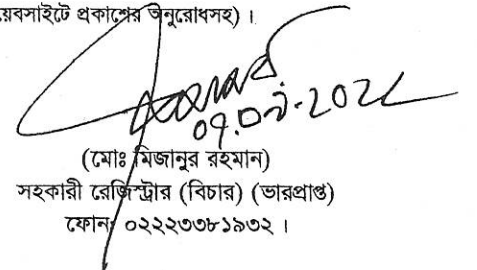 য়েবসাইটে প্রকাশের অনুরোধসহ) ।
(মোঃ মিজানুর রহমান)
সহকারী রেজিস্ট্রার (বিচার) (ভারপ্রাপ্ত)
ফোনঃ ০২২২৩৩৮১৯৩২ ।